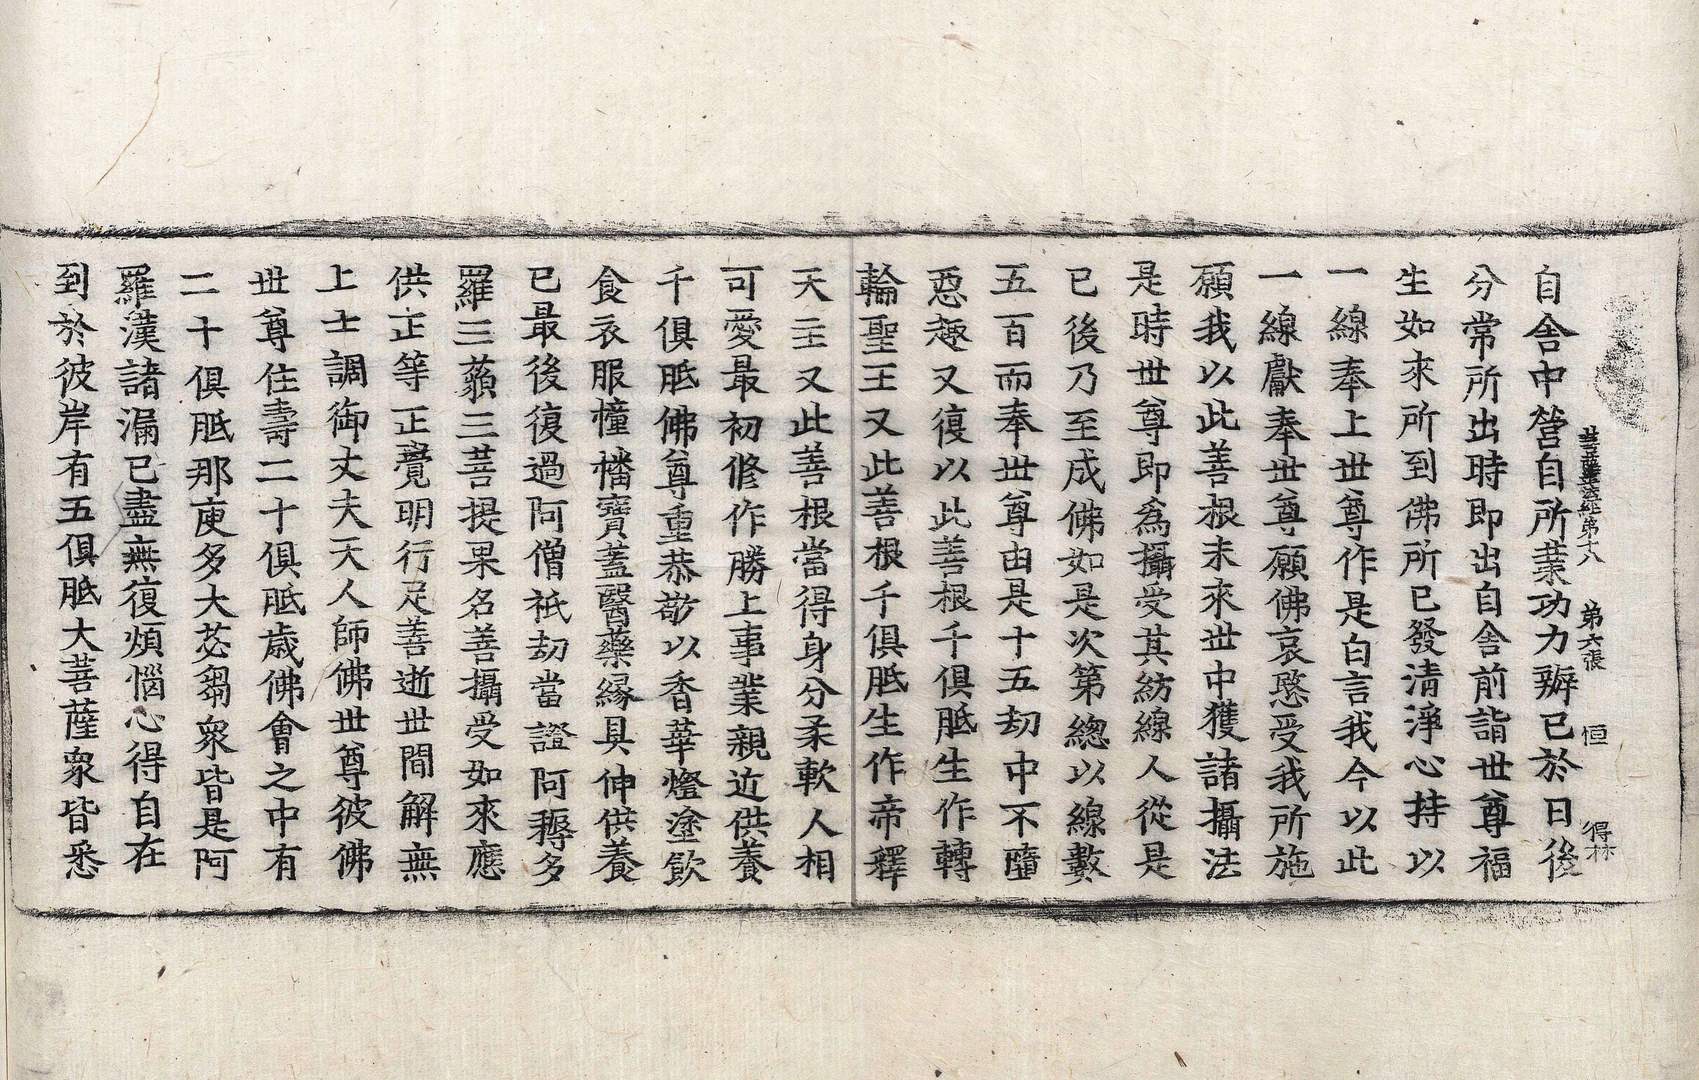 菩薩藏經第十八　第六張　恒　得林
自舍中營自所業功力辦已於日後
分常所出時即出自舍前詣世尊福
生如來所到佛所已發清淨心持以
一線奉上世尊作是白言我今以此
一線獻奉世尊願佛哀愍受我所施
願我以此善根未來世中獲諸攝法
是時世尊即爲攝受其紡線人從是
已後乃至成佛如是次第總以線數
五百而奉世尊由是十五劫中不墮
惡趣又復以此善根千俱胝生作轉
輪聖王又此善根千俱胝生作帝釋
天主又此善根當得身分柔軟人相
可愛最初修作勝上事業親近供養
千俱胝佛尊重恭敬以香華燈塗飲
食衣服幢幡寶蓋醫藥緣具伸供養
已最後復過阿僧祇劫當證阿耨多
羅三藐三菩提果名善攝受如來應
供正等正覺明行足善逝世間解無
上士調御丈夫天人師佛世尊彼佛
世尊住壽二十俱胝歲佛會之中有
二十俱胝那庾多大苾芻衆皆是阿
羅漢諸漏已盡無復煩惱心得自在
到於彼岸有五俱胝大菩薩衆皆悉